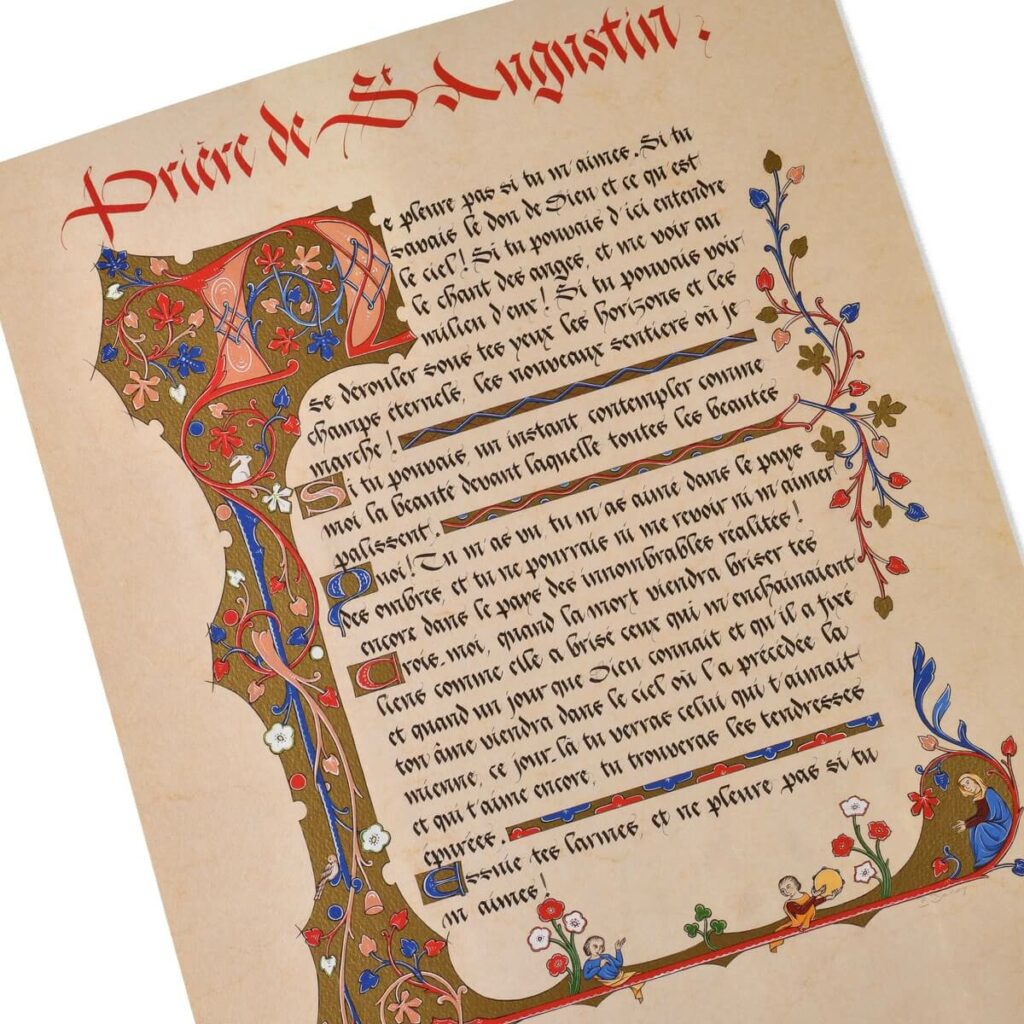 Prière de St Augustin.
Ne pleure pas si tu m'aimes. Si tu
savais le don de Dieu et ce qu'est
le ciel! Si tu pouvais d'ici entendre
le chant des anges, et me voir au
milieu d'eux! Si tu pouvais voir
se dérouler sous tes yeux les horizons et les
champs éternels, les nouveaux sentiers où je
marche!
Si tu pouvais, un instant contempler comme
moi la beauté devant laquelle toutes les beautés
palissent.
Quoi! Tu m'as vu, tu m'as aimé dans le pays
des ombres, et tu ne pourrais ni me revoir ni m'aimer
encore dans le pays des innombrables réalités!
Crois-moi, quand la mort viendra briser tes
liens comme elle a brisé ceux qui m'enchainaient
et quand un jour que Dieu connait et qu'il a fixé
ton âme viendra dans le ciel où l'a précédée la
mienne, ce jour-là tu verras celui qui t'aimait
et qui t'aime encore, tu trouveras les tendresses
épurées.
Essuie tes larmes, et ne pleure pas si tu
m'aimes!